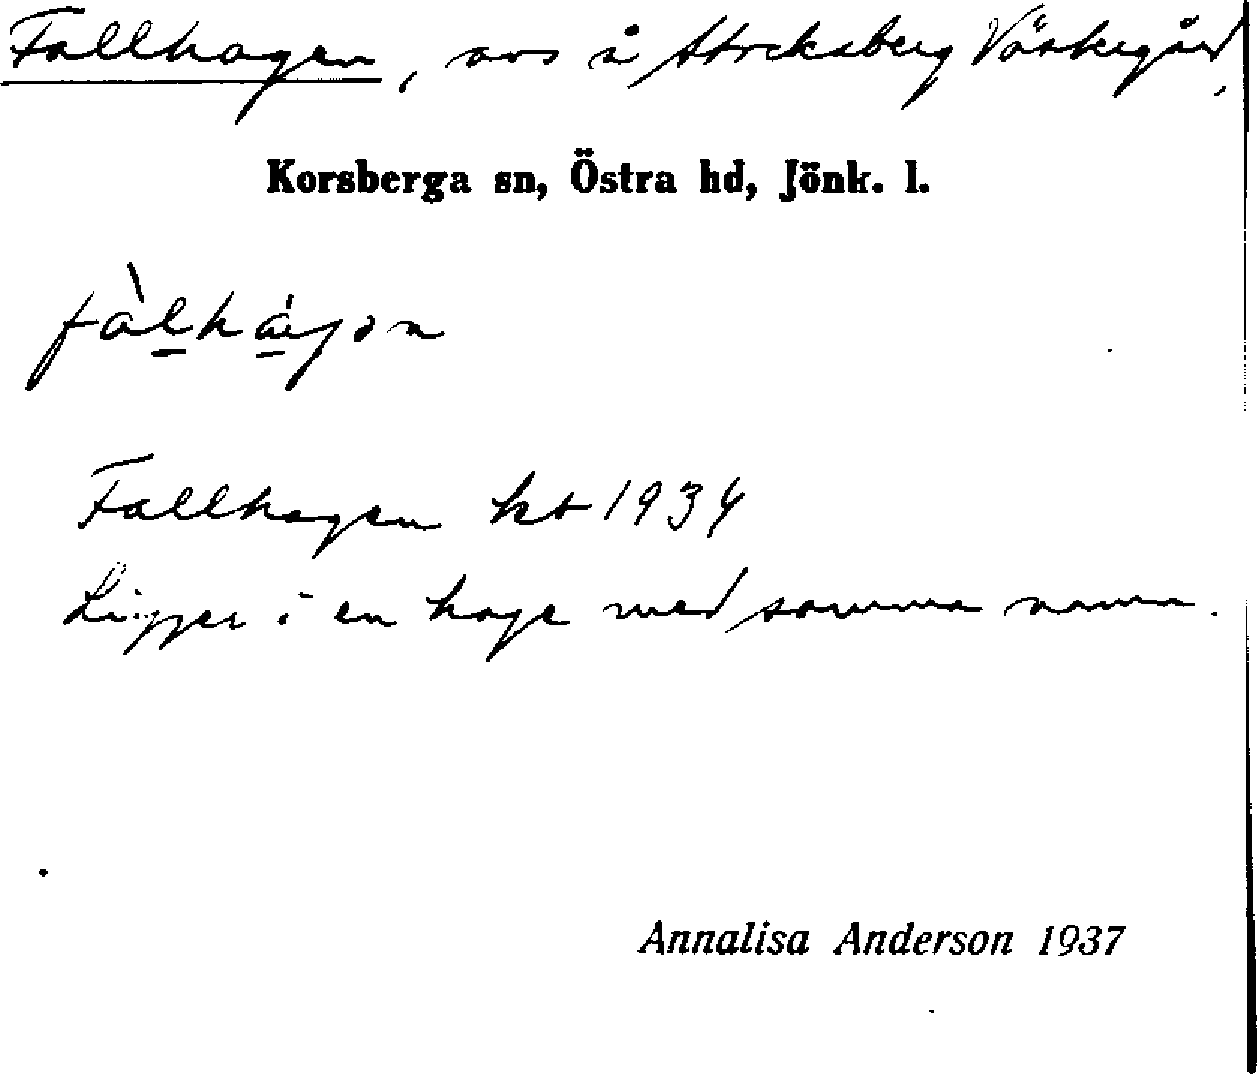 Fallhagen, avs å Stocksberg Västregård,
Korsberga sn, Östra hd, Jönk. l.
fàlháǥən
Fallhagen kt 1934
Ligger i en hage med samma namn.
Annalisa Anderson 1937